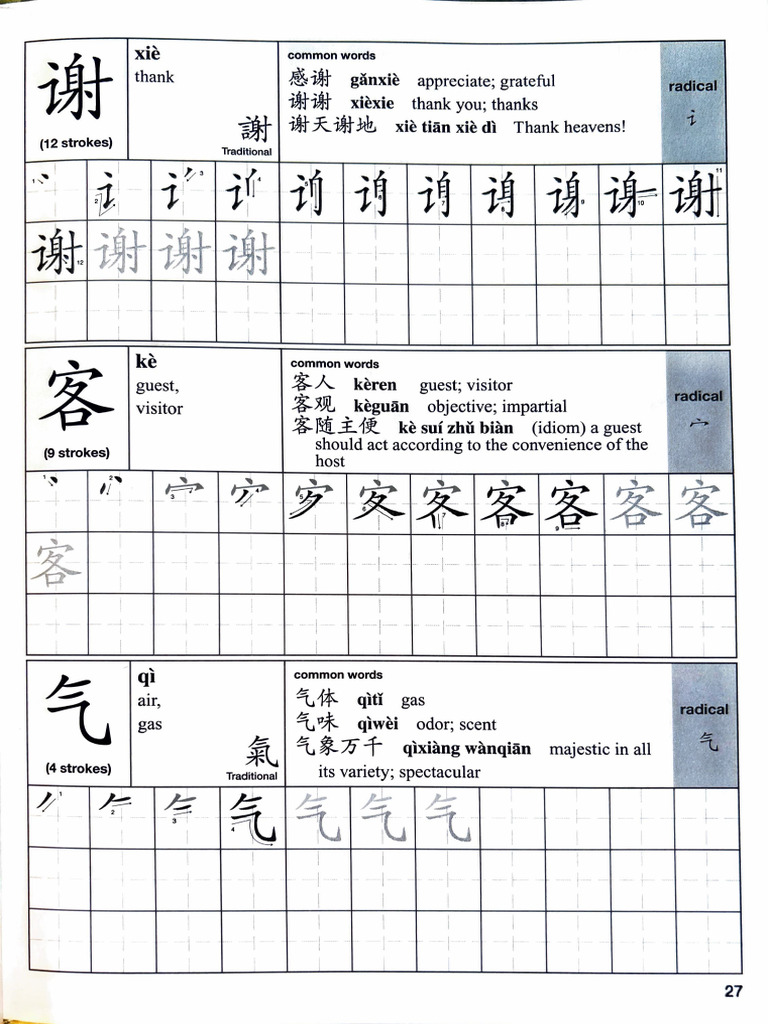 谢
(12 strokes)
xiè
thank
謝
Traditional
common words
感谢 gǎnxiè appreciate; grateful
谢谢 xièxie thank you; thanks
谢天谢地 xiè tiān xiè dì Thank heavens!
radical
讠
谢 谢 谢 谢
客
(9 strokes)
kè
guest,
visitor
common words
客人 kèren guest; visitor
客观 kèguān objective; impartial
客随主便 kè suí zhǔ biàn (idiom) a guest
should act according to the convenience of the
host
radical
宀
客 客 客
客
气
(4 strokes)
qì
air,
gas
氣
Traditional
common words
气体 qìtǐ gas
气味 qìwèi odor; scent
气象万千 qìxiàng wànqiān majestic in all
its variety; spectacular
radical
气
气 气 气 气
27